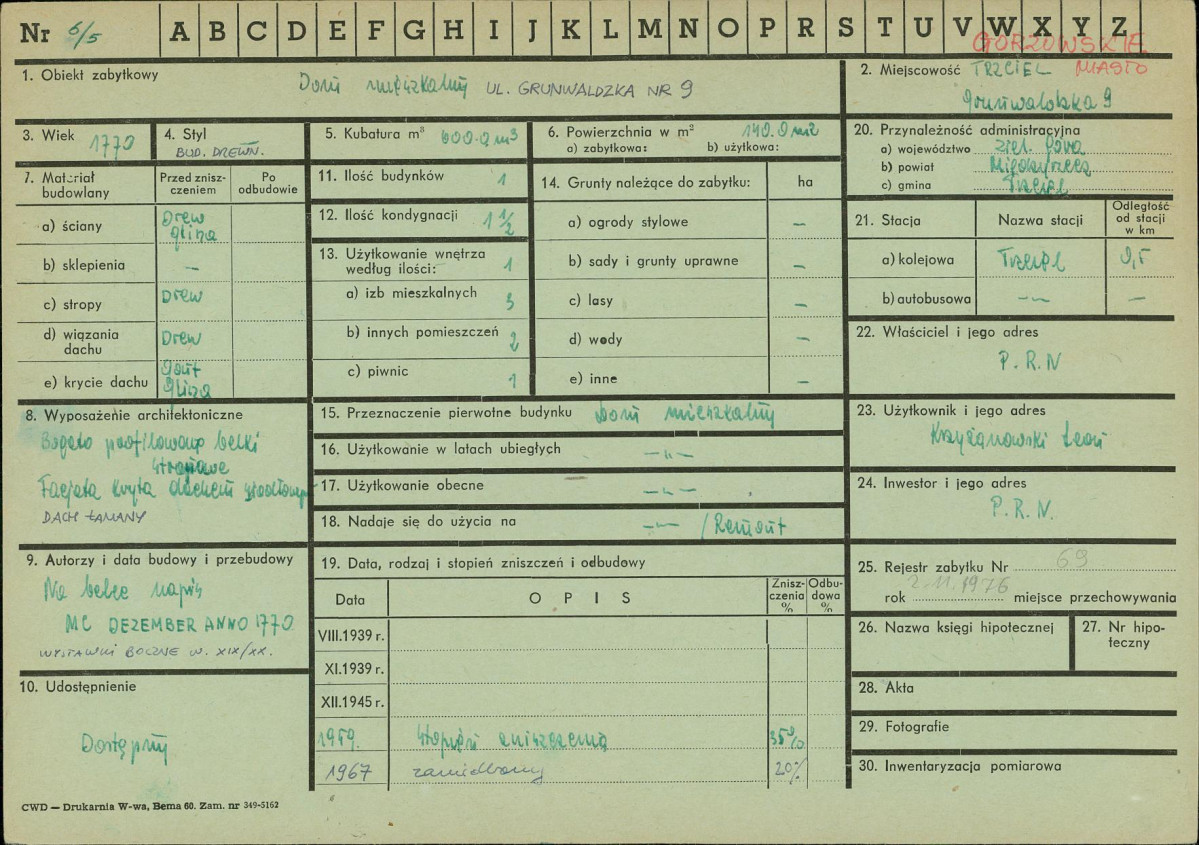 Nr 6/5 A B C D E F G H I J K L M N O P R S T U V W X Y Z
GORZOWSKIE
1. Obiekt zabytkowy Dom mieszkalny UL. GRUNWALDZKA NR 9
2. Miejscowość TRZCIEL MIASTO
Grunwaldzka 9
3. Wiek 1770
4. Styl
BUD. DREWN.
5. Kubatura m³ 600.0 m3
6. Powierzchnia w m² 140.0 m2
a) zabytkowa: b) użytkowa:
20. Przynależność administracyjna
a) województwo ziel. Góra
b) powiat Międzyrzecz
c) gmina Trzciel
7. Materiał budowlany
Przed zniszczeniem
Po odbudowie
a) ściany Drew
glina
b) sklepienia —
c) stropy Drew
d) wiązania dachu Drew
e) krycie dachu Gont
glina
11. Ilość budynków 1
12. Ilość kondygnacji 1 1/2
13. Użytkowanie wnętrza
według ilości: 1
a) izb mieszkalnych 3
b) innych pomieszczeń 2
c) piwnic 1
14. Grunty należące do zabytku: ha
a) ogrody stylowe —
b) sady i grunty uprawne —
c) lasy —
d) wody —
e) inne —
21. Stacja Nazwa stacji
Odległość
od stacji
w km
a) kolejowa Trzciel 0,5
b) autobusowa —"— —
22. Właściciel i jego adres
P.R.N
8. Wyposażenie architektoniczne
Bogato profilowane belki
stropowe
Facjata kryta dachem
DACH ŁAMANY
15. Przeznaczenie pierwotne budynku Dom mieszkalny
16. Użytkowanie w latach ubiegłych —"—
17. Użytkowanie obecne —"—
18. Nadaje się do użycia na —"— /Remont
23. Użytkownik i jego adres
Krzyżanowski Leon
24. Inwestor i jego adres
P.R.N.
9. Autorzy i data budowy i przebudowy
Na belce napis
MC DEZEMBER ANNO 1770
WYSTAWKI BOCZNE W. XIX/XX.
10. Udostępnienie
Dostępny
19. Data, rodzaj i stopień zniszczeń i odbudowy
Data O P I S
Zniszczenia %
Odbudowa %
VIII.1939 r.
XI.1939 r.
XII.1945 r.
1959. Stopień zniszczenia 35%
1967 zaniedbany 20%
25. Rejestr zabytku Nr 69
rok 2.11.1976 miejsce przechowywania
26. Nazwa księgi hipotecznej
27. Nr hipoteczny
28. Akta
29. Fotografie
30. Inwentaryzacja pomiarowa
CWD — Drukarnia W-wa, Bema 60. Zam. nr 349-5162